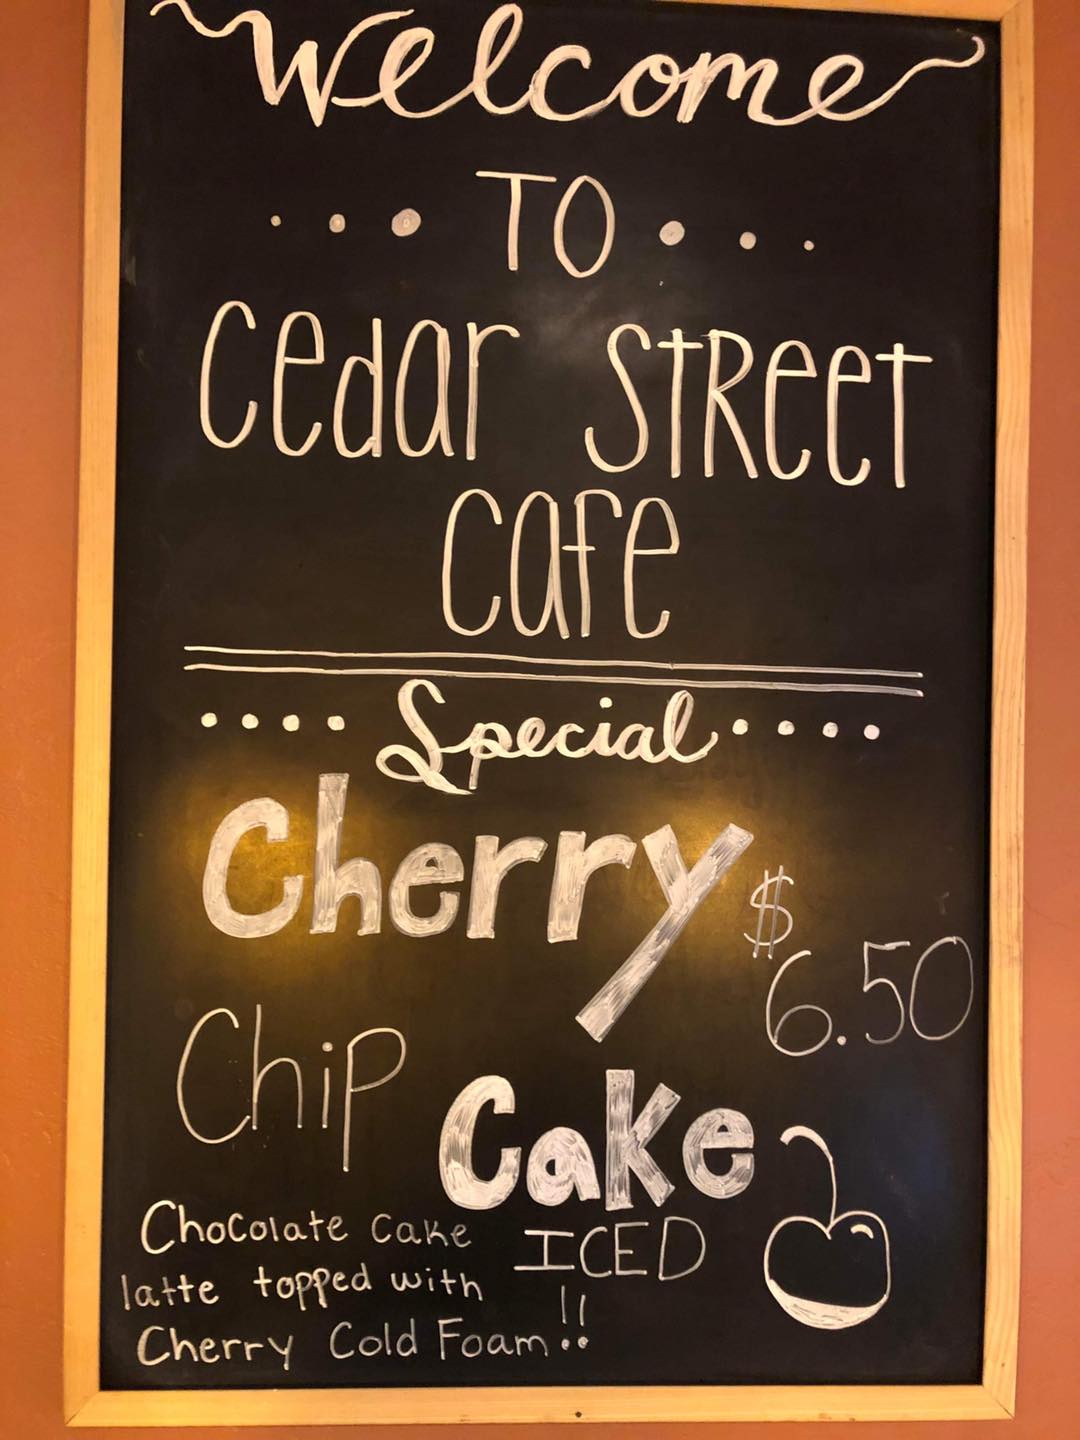 Welcome
TO
Cedar Street
Cafe
Special
Cherry
$6.50
Chip
Cake
ICED
!!
Chocolate Cake
latte topped with
Cherry Cold Foam!!